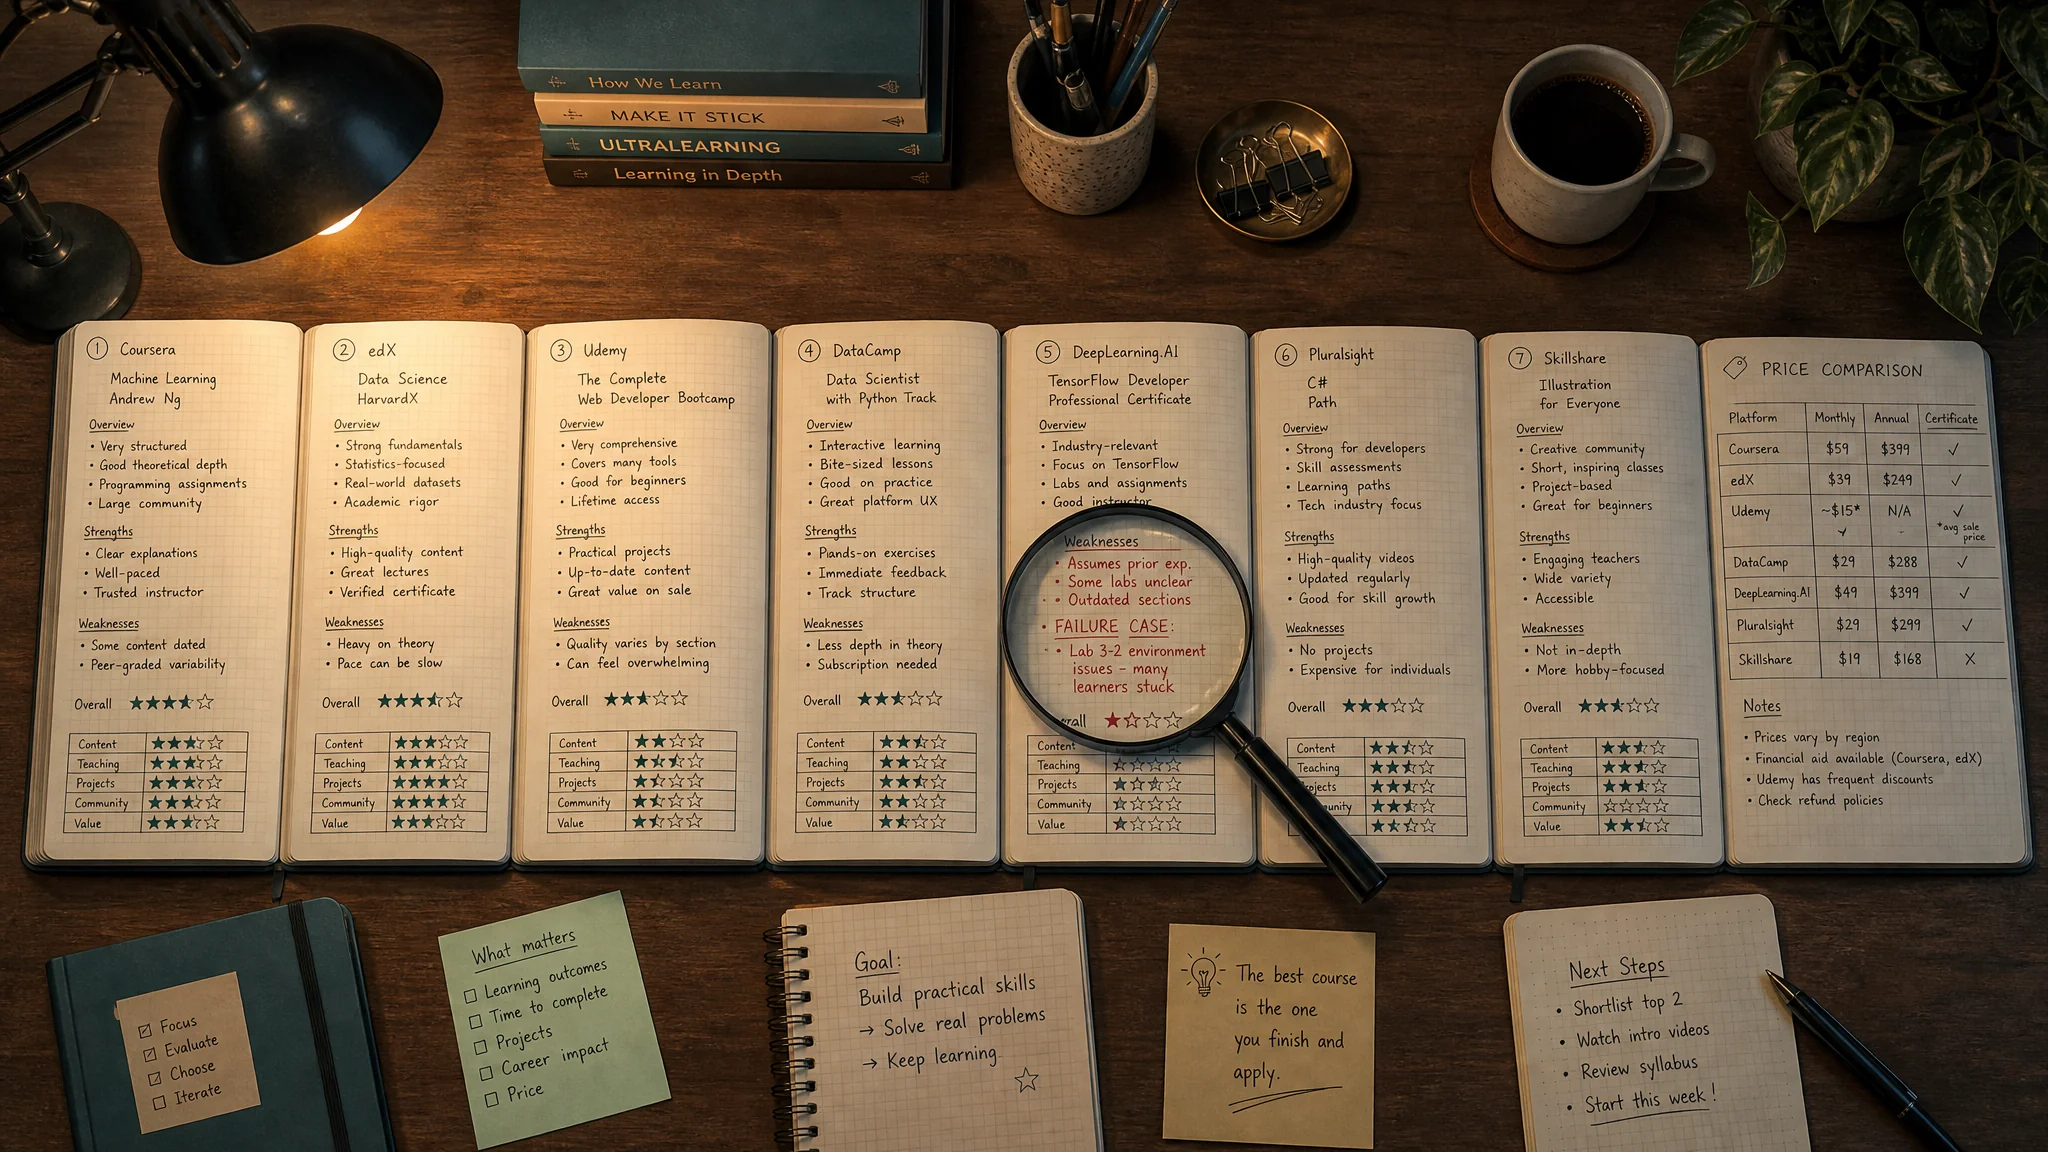 How We Learn
MAKE IT STICK
ULTRALEARNING
Learning in Depth
1 Coursera
Machine Learning
Andrew Ng
Overview
• Very structured
• Good theoretical depth
• Programming assignments
• Large community
Strengths
• Clear explanations
• Well-paced
• Trusted instructor
Weaknesses
• Some content dated
• Peer-graded variability
Overall
Content
Teaching
Projects
Community
Value
2 edX
Data Science
HarvardX
Overview
• Strong fundamentals
• Statistics-focused
• Real-world datasets
• Academic rigor
Strengths
• High-quality content
• Great lectures
• Verified certificate
Weaknesses
• Heavy on theory
• Pace can be slow
Overall
Content
Teaching
Projects
Community
Value
3 Udemy
The Complete
Web Developer Bootcamp
Overview
• Very comprehensive
• Covers many tools
• Good for beginners
• Lifetime access
Strengths
• Practical projects
• Up-to-date content
• Great value on sale
Weaknesses
• Quality varies by section
• Can feel overwhelming
Overall
Content
Teaching
Projects
Community
Value
4 DataCamp
Data Scientist
with Python Track
Overview
• Interactive learning
• Bite-sized lessons
• Good on practice
• Great platform UX
Strengths
• Piands-on exercises
• Immediate feedback
• Track structure
Weaknesses
• Less depth in theory
• Subscription needed
Overall
Content
Teaching
Projects
Community
Value
5 DeepLearning.AI
TensorFlow Developer
Professional Certificate
Overview
• Industry-relevant
• Focus on TensorFlow
• Labs and assignments
• Good instructor
Weaknesses
• Assumes prior exp.
• Some labs unclear
• Outdated sections
• FAILURE CASE:
• Lab 3-2 environment
issues – many
learners stuck
Content
Teaching
Projects
Community
Value
6 Pluralsight
C#
Path
Overview
• Strong for developers
• Skill assessments
• Learning paths
• Tech industry focus
Strengths
• High-quality videos
• Updated regularly
• Good for skill growth
Weaknesses
• No projects
• Expensive for individuals
Overall
Content
Teaching
Value
7 Skillshare
Illustration
for Everyone
Overview
• Creative community
• Short, inspiring classes
• Project-based
• Great for beginners
Strengths
• Engaging teachers
• Wide variety
• Accessible
Weaknesses
• Not in-depth
• More hobby-focused
Overall
Content
Teaching
Projects
Community
Value
PRICE COMPARISON
Platform Monthly Annual Certificate
Coursera $59 $399 ✓
edX $39 $249 ✓
Udemy ~$15* N/A ✓
*avg sale
price
DataCamp $29 $288 ✓
DeepLearning.AI $49 $399 ✓
Pluralsight $29 $299 ✓
Skillshare $19 $168 X
Notes
• Prices vary by region
• Financial aid available (Coursera, edX)
• Udemy has frequent discounts
• Check refund policies
Focus
Evaluate
Choose
Iterate
What matters
Learning outcomes
Time to complete
Projects
Career impact
Price
Goal:
Build practical skills
→ Solve real problems
→ Keep learning
The best course
is the one
you finish and
apply.
Next Steps
• Shortlist top 2
• Watch intro videos
• Review syllabus
• Start this week!